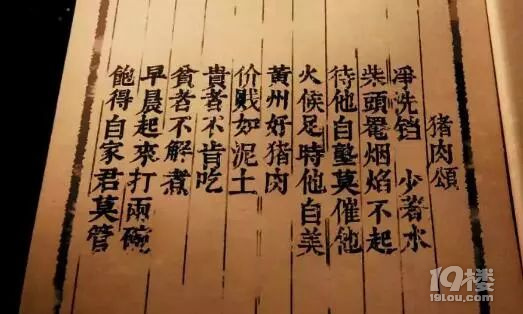 猪肉頌
凈洗铛 少著水
柴頭罨烟焰不起
待他自塾莫催他
火候足時他自美
黄州好猪肉
价贱如泥土
貴者不肯吃
貧者不解煮
早晨起來打兩碗
飽得自家君莫管
19楼
19lou.com